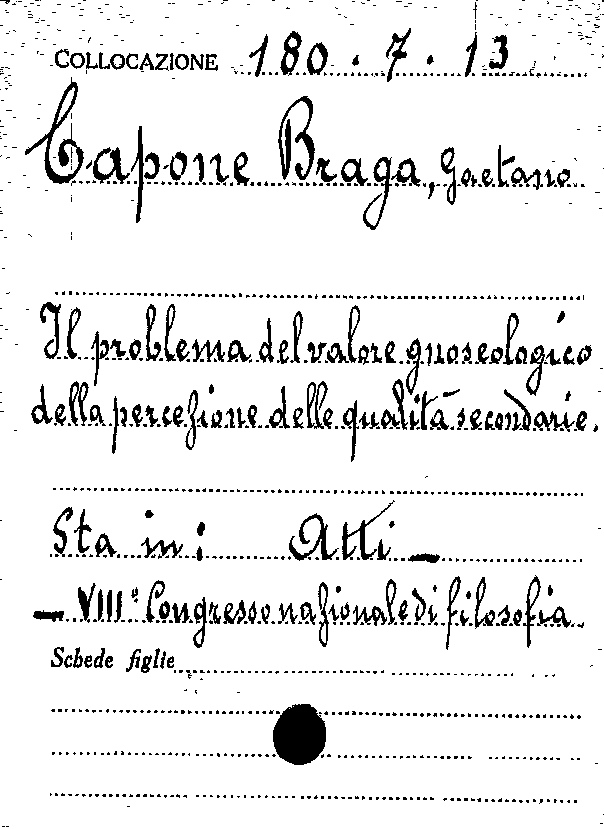 COLLOCAZIONE 180 . 7 . 13
Capone Braga, Gaetano
Il problema del valore gnoseologico
della percezione delle qualità secondarie.
Sta in: Atti —
— VIII° Congresso nazionale di filosofia.
Schede figlie